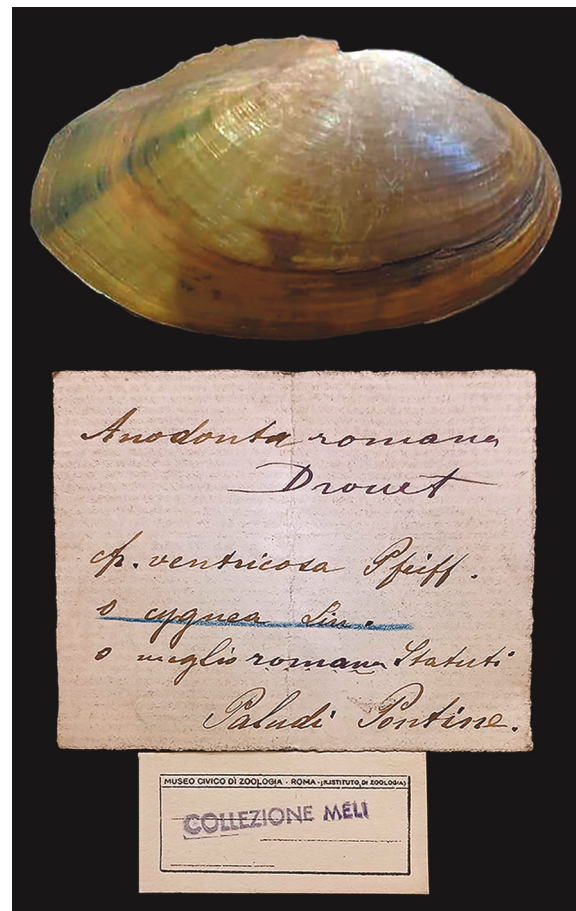 Anodonta romana
Drouet
cfr. ventricosa Pfeiff.
o cygnea Lin.
o meglio romana Statuti
Paludi Pontine.
MUSEO CIVICO DI ZOOLOGIA - ROMA - (ISTITUTO DI ZOOLOGIA)
COLLEZIONE MELI